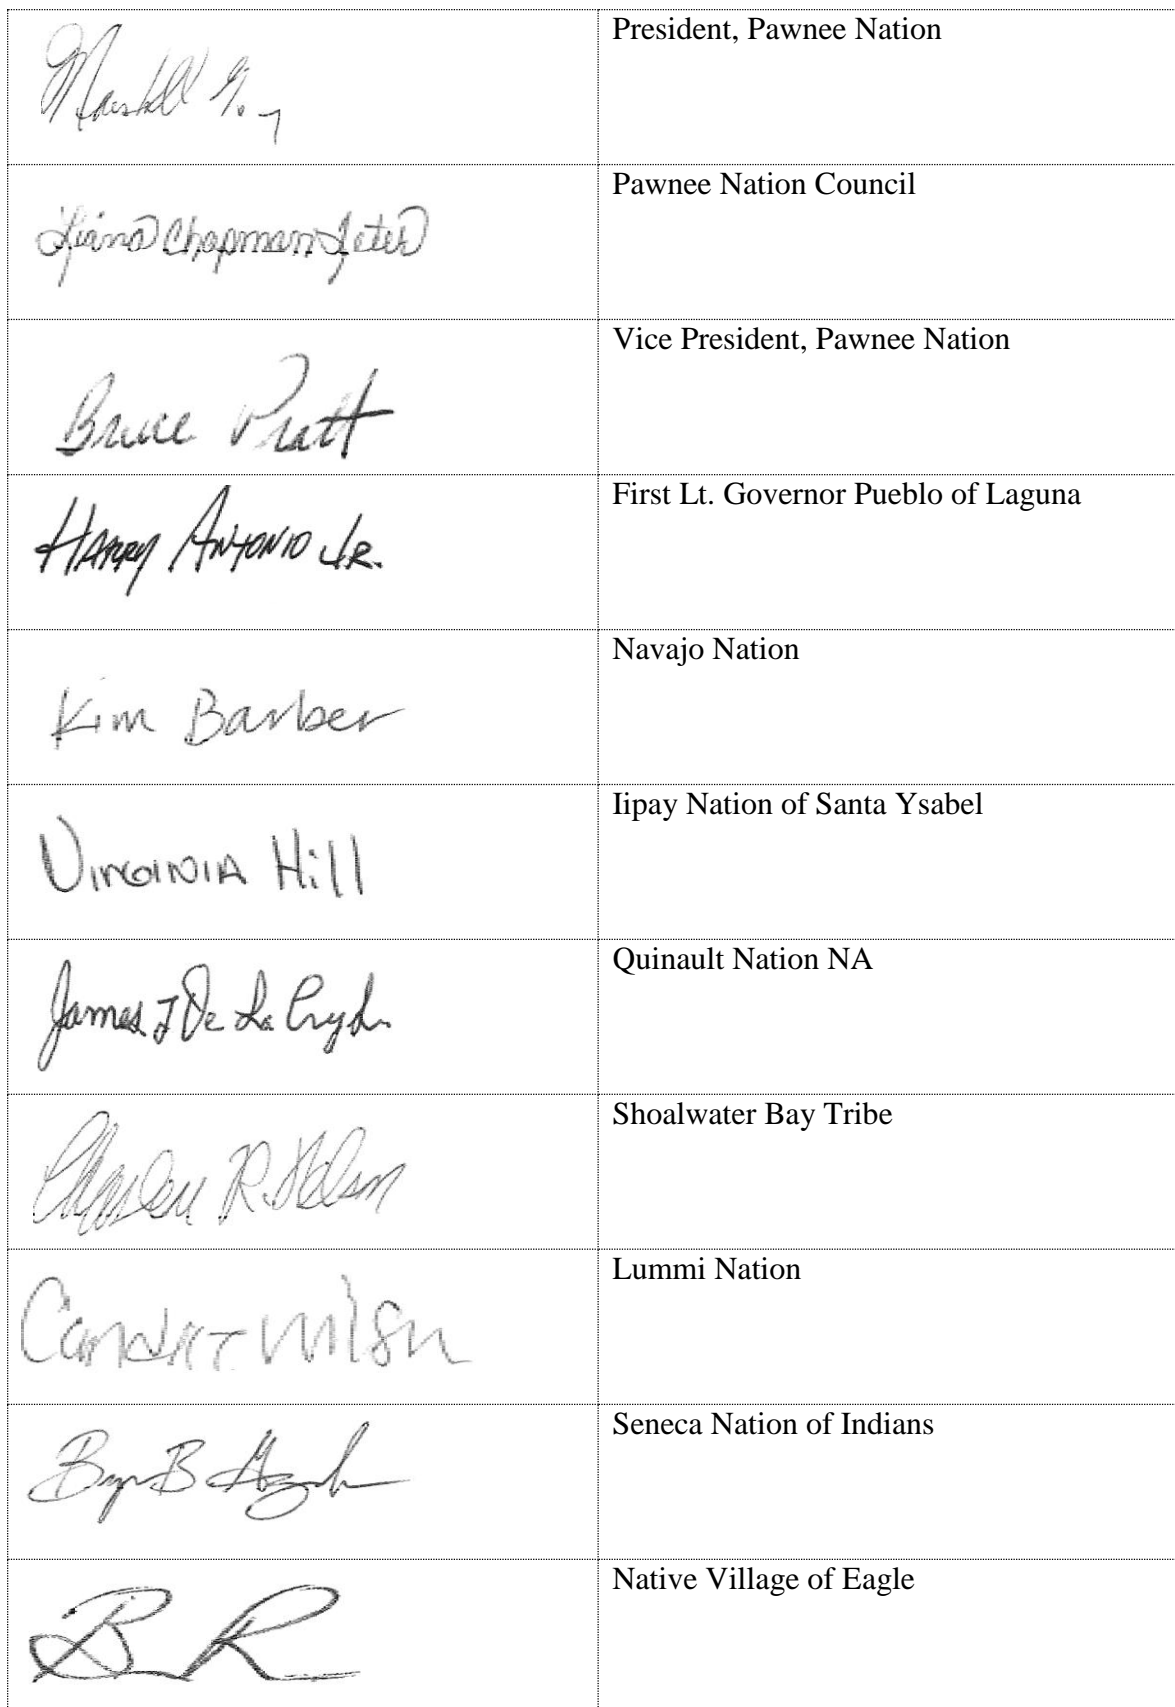 President, Pawnee Nation
Chapman
Pawnee Nation Council
Bruce Pratt
Vice President, Pawnee Nation
HARRY ANTONIO JR.
First Lt. Governor Pueblo of Laguna
Kim Barber
Navajo Nation
VIRGINIA Hill
Iipay Nation of Santa Ysabel
James J De La
Quinault Nation NA
R. Nelson
Shoalwater Bay Tribe
Wilson
Lummi Nation
Seneca Nation of Indians
Native Village of Eagle